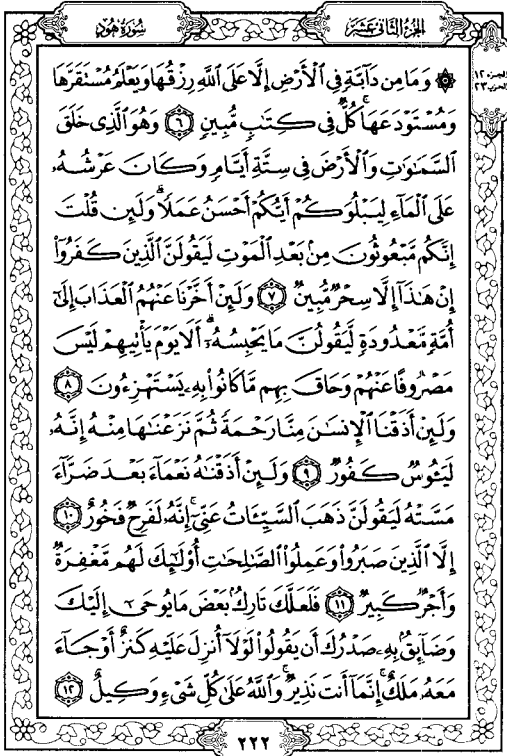 الجزء الثاني عشر
سورة هود
الجزء ١٢
الحزب ٢٣
۞ وَمَا مِن دَآبَّةٍ فِي الْأَرْضِ إِلَّا عَلَى اللَّهِ رِزْقُهَا وَيَعْلَمُ مُسْتَقَرَّهَا
وَمُسْتَوْدَعَهَا ۚ كُلٌّ فِي كِتَابٍ مُّبِينٍ ٦ وَهُوَ الَّذِي خَلَقَ
السَّمَاوَاتِ وَالْأَرْضَ فِي سِتَّةِ أَيَّامٍ وَكَانَ عَرْشُهُ
عَلَى الْمَاءِ لِيَبْلُوَكُمْ أَيُّكُمْ أَحْسَنُ عَمَلًا ۗ وَلَئِن قُلْتَ
إِنَّكُم مَّبْعُوثُونَ مِن بَعْدِ الْمَوْتِ لَيَقُولَنَّ الَّذِينَ كَفَرُوا
إِنْ هَٰذَا إِلَّا سِحْرٌ مُّبِينٌ ٧ وَلَئِنْ أَخَّرْنَا عَنْهُمُ الْعَذَابَ إِلَىٰ
أُمَّةٍ مَّعْدُودَةٍ لَّيَقُولُنَّ مَا يَحْبِسُهُ ۗ أَلَا يَوْمَ يَأْتِيهِمْ لَيْسَ
مَصْرُوفًا عَنْهُمْ وَحَاقَ بِهِم مَّا كَانُوا بِهِ يَسْتَهْزِءُونَ ٨
وَلَئِنْ أَذَقْنَا الْإِنسَانَ مِنَّا رَحْمَةً ثُمَّ نَزَعْنَاهَا مِنْهُ إِنَّهُ
لَيَئُوسٌ كَفُورٌ ٩ وَلَئِنْ أَذَقْنَاهُ نَعْمَاءَ بَعْدَ ضَرَّاءَ
مَسَّتْهُ لَيَقُولَنَّ ذَهَبَ السَّيِّئَاتُ عَنِّي ۚ إِنَّهُ لَفَرِحٌ فَخُورٌ ١٠
إِلَّا الَّذِينَ صَبَرُوا وَعَمِلُوا الصَّالِحَاتِ أُولَٰئِكَ لَهُم مَّغْفِرَةٌ
وَأَجْرٌ كَبِيرٌ ١١ فَلَعَلَّكَ تَارِكٌ بَعْضَ مَا يُوحَىٰ إِلَيْكَ
وَضَائِقٌ بِهِ صَدْرُكَ أَن يَقُولُوا لَوْلَا أُنزِلَ عَلَيْهِ كَنزٌ أَوْ جَاءَ
مَعَهُ مَلَكٌ ۚ إِنَّمَا أَنتَ نَذِيرٌ ۚ وَاللَّهُ عَلَىٰ كُلِّ شَيْءٍ وَكِيلٌ ١٢
٢٢٢